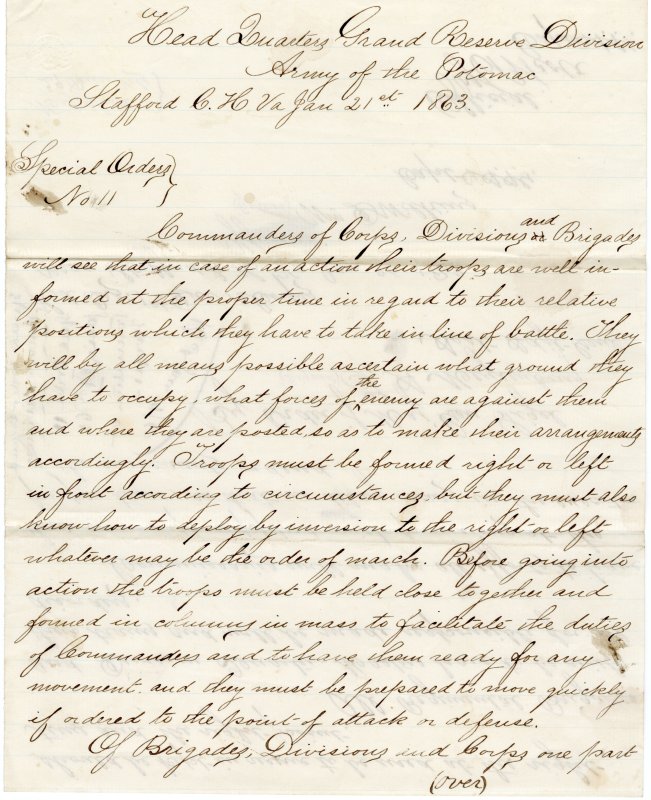 Head Quarters Grand Reserve Division
Army of the Potomac
Stafford C. H. Va Jan 21st 1863.
Special Orders }
No 11
Commanders of Corps, Divisions and Brigades
will see that in case of an action their troops are well in-
formed at the proper time in regard to their relative
positions which they have to take in line of battle. They
will by all means possible ascertain what ground they
have to occupy, what forces of the enemy are against them
and where they are posted, so as to make their arrangements
accordingly. Troops must be formed right or left
in front according to circumstances, but they must also
know how to deploy by inversion to the right or left
whatever may be the order of march. Before going into
action the troops must be held close together and
formed in columns in mass to facilitate the duties
of Commanders and to have them ready for any
movement. and they must be prepared to move quickly
if ordered to the point of attack or defense.
Of Brigades, Divisions and Corps one part
(over)